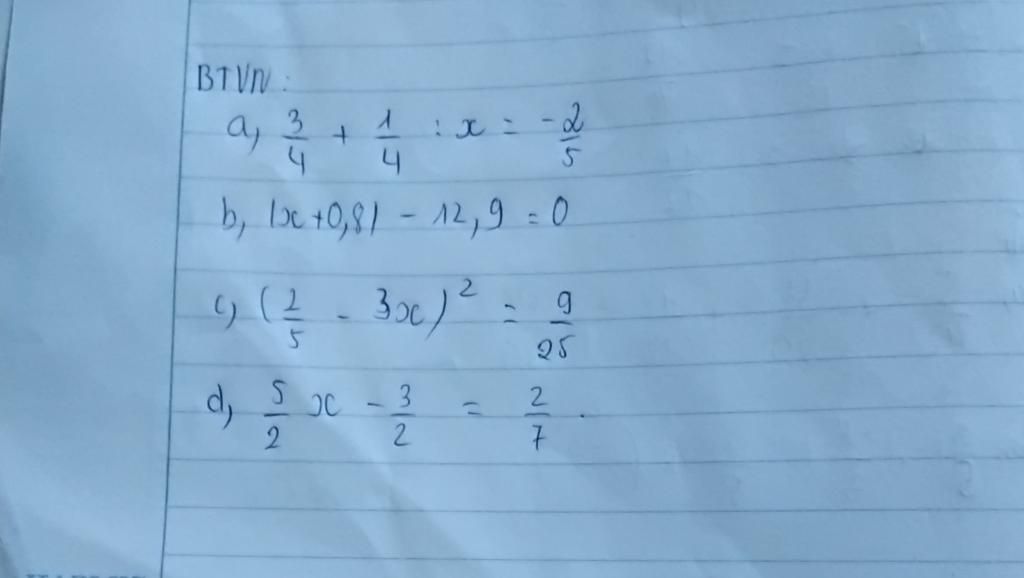 BTVN:
a, 3/4 + 1/4 : x = -2/5
b, |x+0,8| - 12,9 = 0
c, (2/5 - 3x)² = 9/25
d, 5/2 x - 3/2 = 2/7.